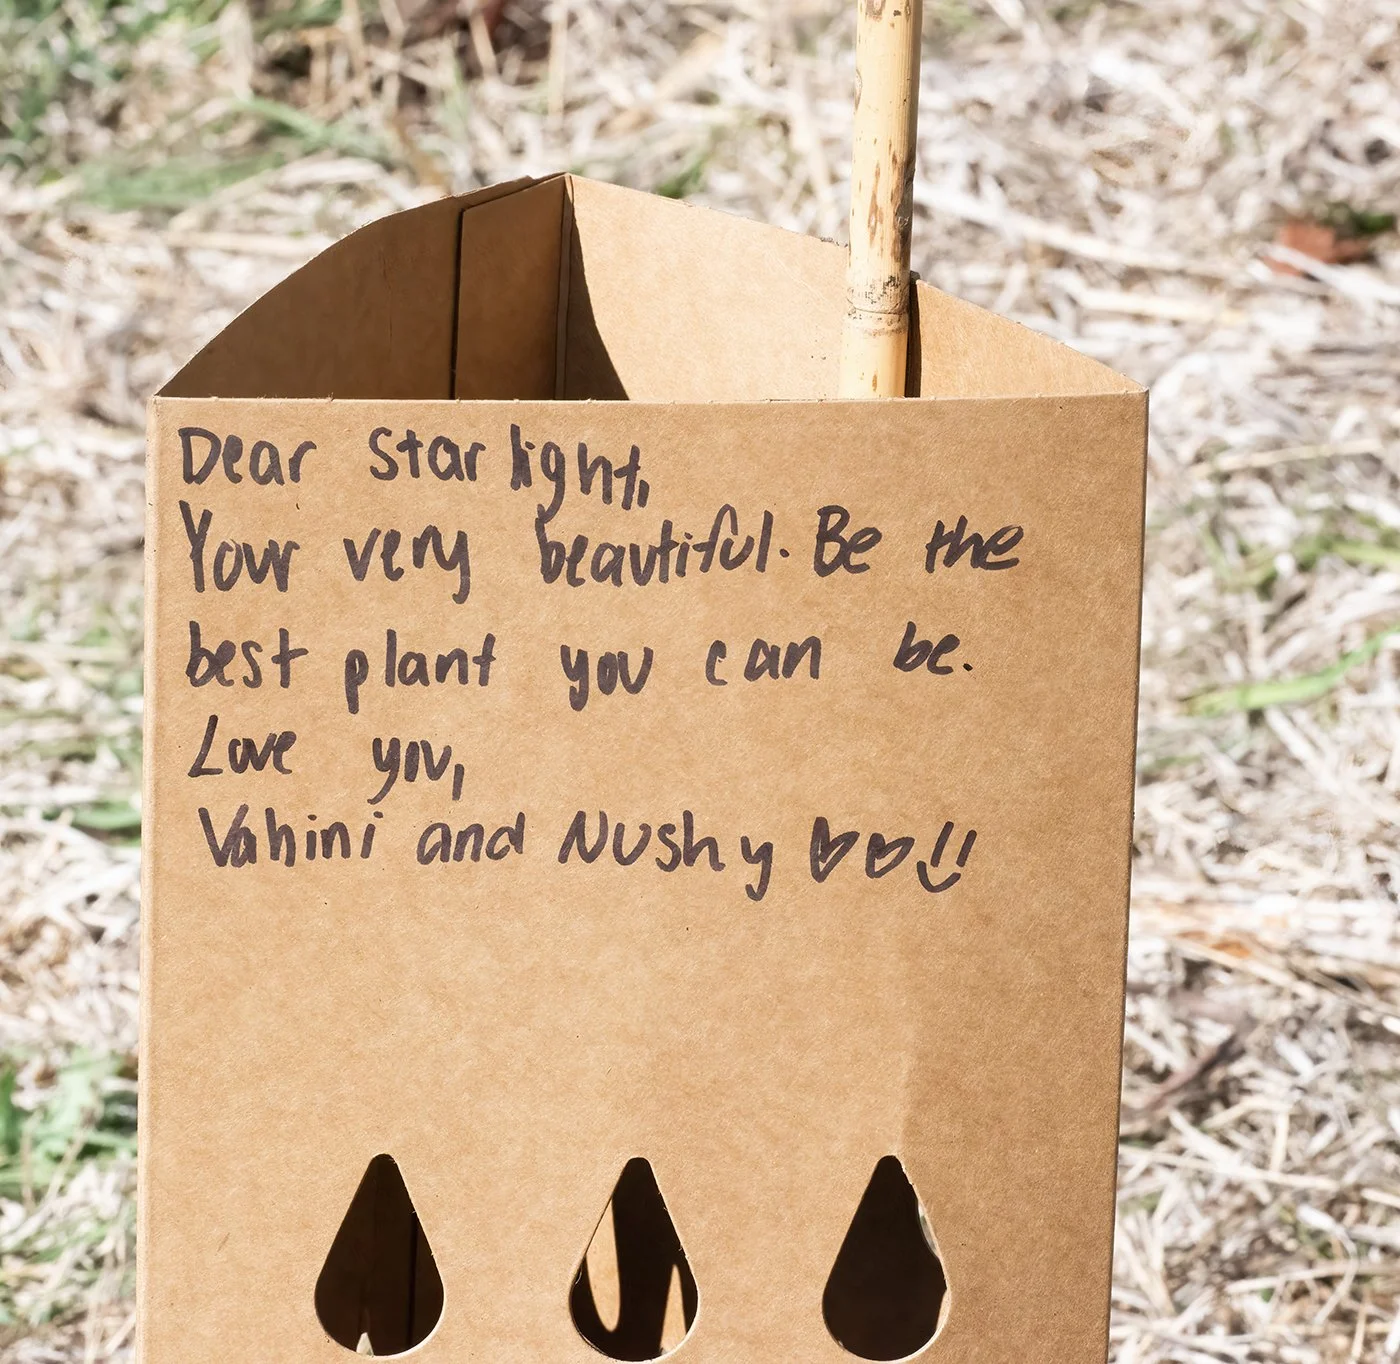 Dear Star light,
Your very beautiful. Be the
best plant you can be.
Love you,
Vahini and Nushy ♡♡!!